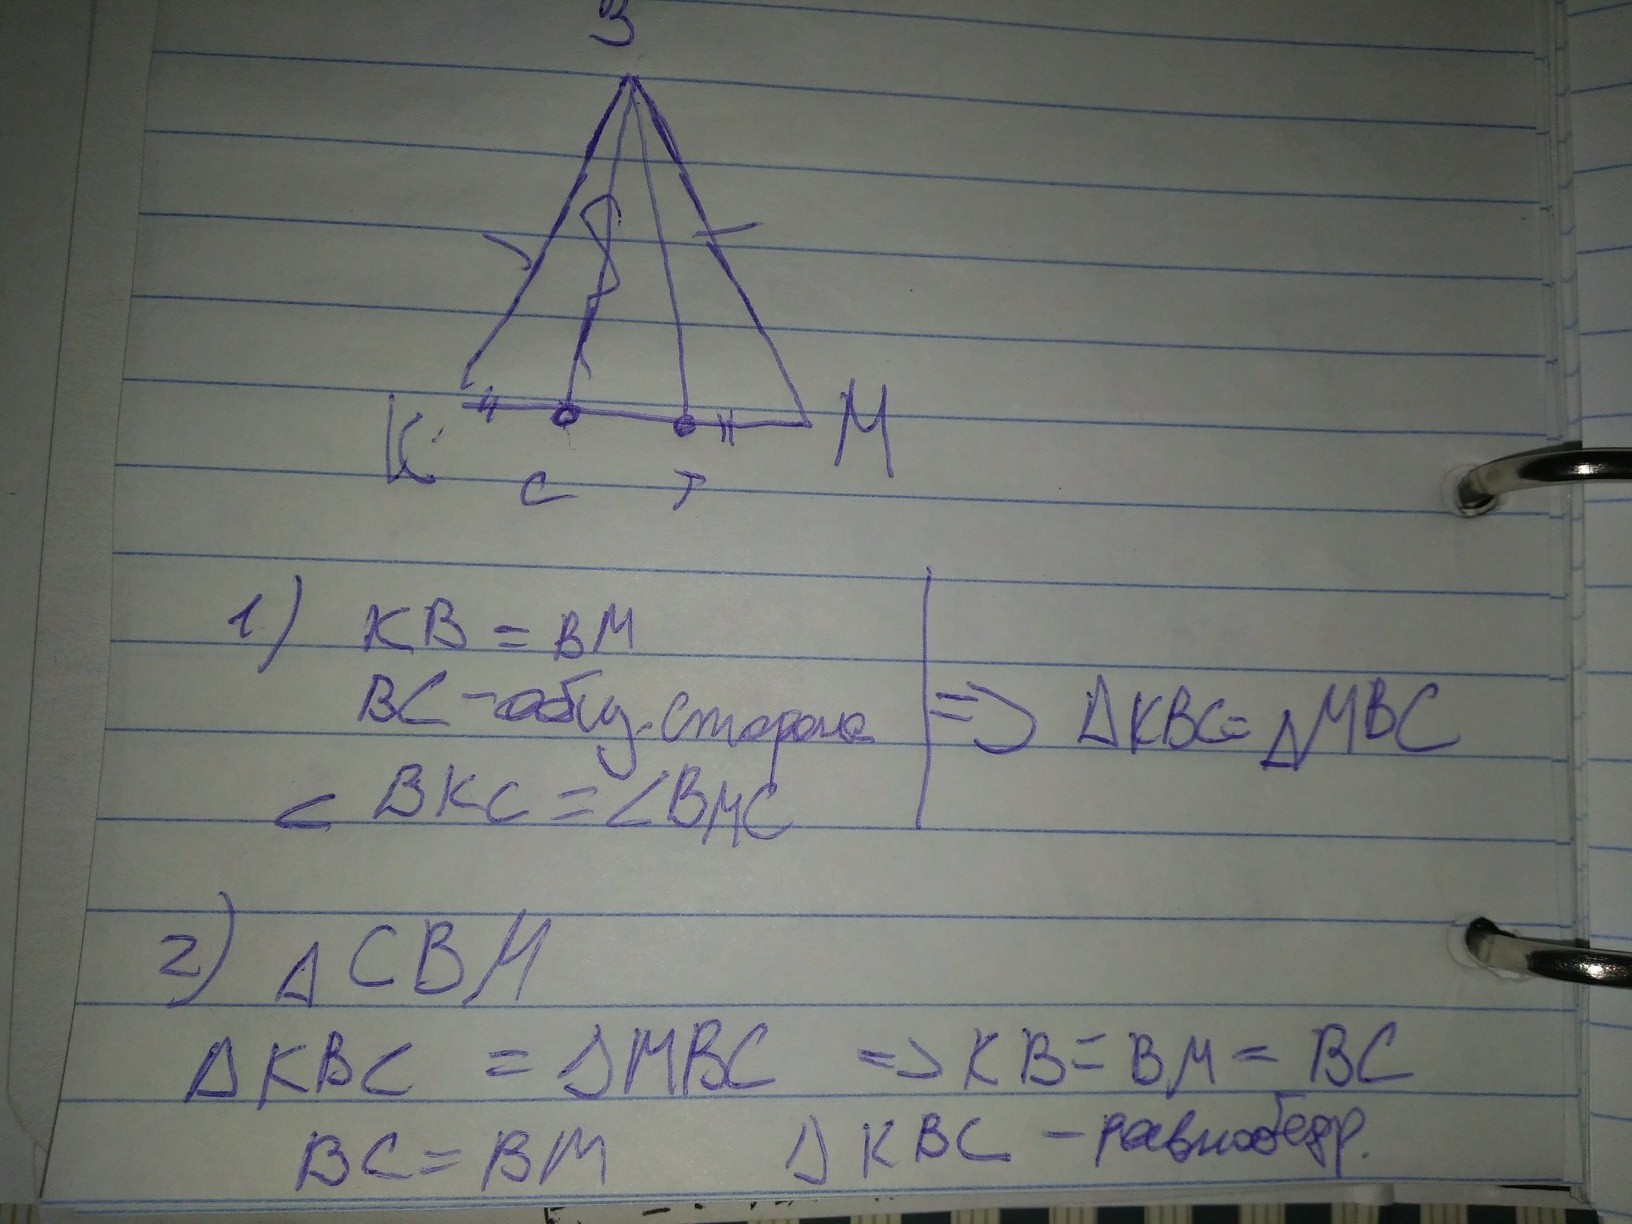 B
K
M
C
T
1) KB = BM
BC - общ. сторона
∠ BKC = ∠BMC
=> ΔKBC = ΔMBC
2) Δ CBM
ΔKBC = ΔMBC => KB = BM = BC
BC = BM ΔKBC - равнобедр.